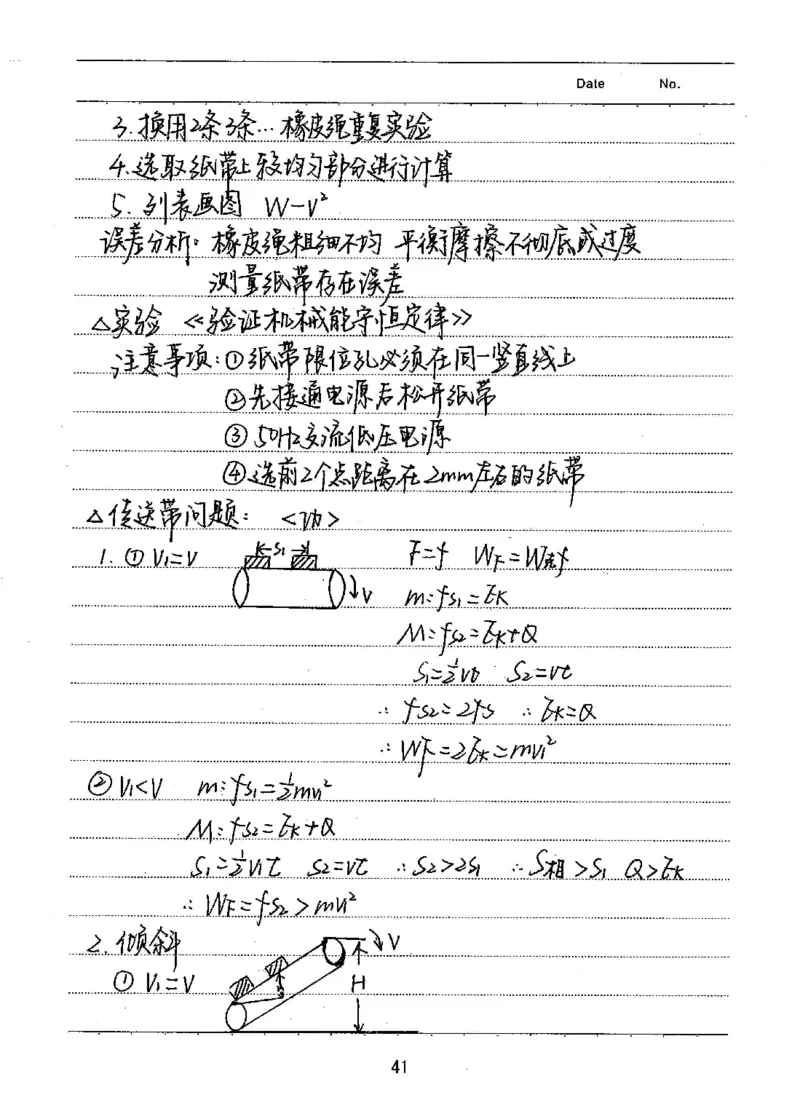 Date No.
3. 换用2条3条…橡皮绳重复实验
4. 选取纸带上较均匀部分进行计算
5. 列表画图 W-V²
误差分析: 橡皮绳粗细不均 平衡摩擦不彻底或过度
测量纸带存在误差
△实验 《验证机械能守恒定律》
注意事项:①纸带限位孔必须在同一竖直线上
②先接通电源后松开纸带
③50Hz交流低压电源
④选前2个点距离在2mm左右的纸带
△传送带问题: <功>
1. ① V₁=V S₁ V F=f W_F=W克f
m: fS₁=Eₖ
M: fS₂=Eₖ+Q
S₁=½vt S₂=vt
∴ fS₂=2fS ∴ Eₖ=Q
∴ W_F=2Eₖ=mv₁²
② V₁<V m: fS₁=½mv₁²
M: fS₂=Eₖ+Q
S₁=½V₁t S₂=vt ∴S₂>2S₁ ∴S相>S₁ Q>Eₖ
∴ W_F=fS₂>mv₁²
2. 倾斜 V
① V₁=V H
41